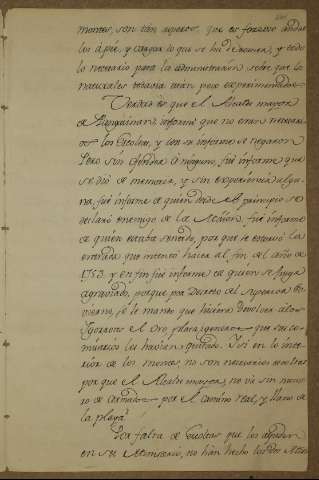 montes, son tan asperos, que es forzoso andar
los á pie, y cargar lo que se ha de comer, y todo
lo necesario para la administracion, sobre que los
naturales todavia eran poco experimentados.
Verdad es que el Alcalde mayor
de Pangasinan informó que no eran necesa
rias las Escoltas, y con su informe se negaron
Pero sin ofensa de ninguno, fué informe que
se dió de memoria, y sin experiencia algu-
na, fué informe de quien desde el principio se
declaró enemigo de la Mision, fué informe
de quien estaba sentido, porque se estorvó la
entrada que intentó hacia al fin del año de
1753. y en fin fué informe de quien se juzga
agraviado, porque por Decreto del Superior Go
vierno, se le mandó que hiciera devolver a los
Ygorrotes el Oro, plata, y generos que sus co-
misarios les havian quitado. Y si en lo inte-
rior de los montes no son necesarias escoltas
por que el Alcalde mayor, no vá sin nume
ro de Soldados por el camino real, y llano de
la playa?
Por falta de Escoltas que los ayuden
en su Ministerio, no han hecho los dos Minis